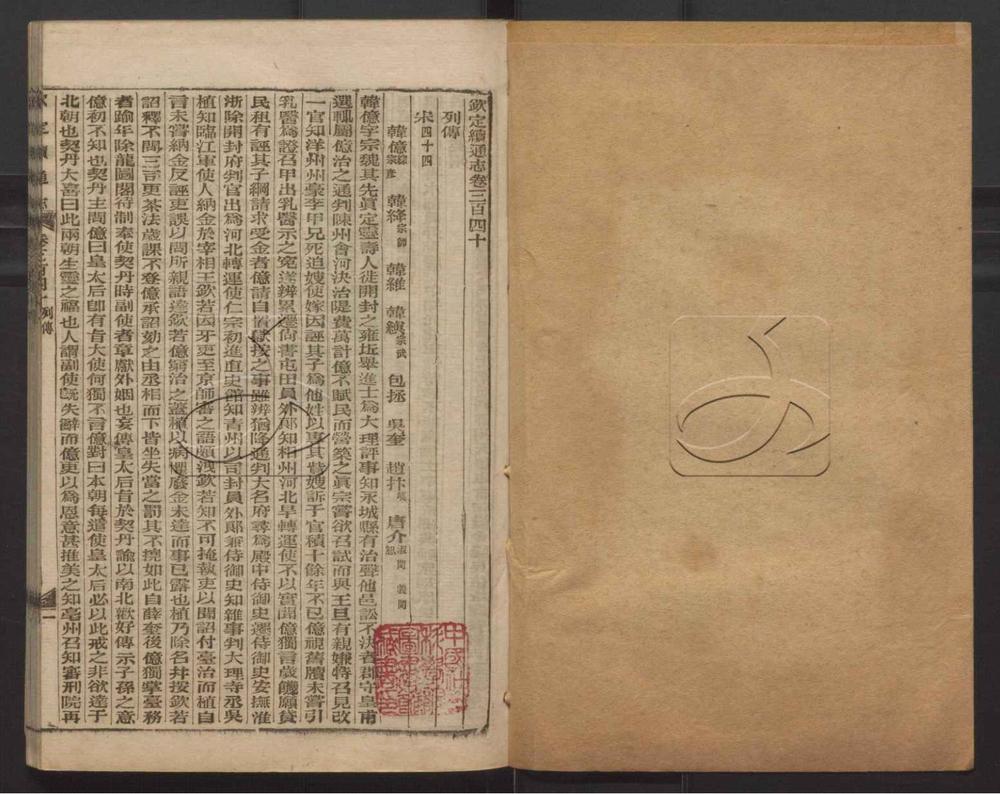 欽定續通志卷三百四十
列傳
宋四十四
韓億綜 宗彥 韓絳宗師 韓維 韓縝宗武 包拯 吳奎 趙抃㞦 唐介淑問 義問 恕
韓億字宗魏其先眞定靈壽人徙開封之雍坵舉進士爲大理評事知永城縣有治聲他邑訟不決者郡守皇甫
選輒屬億治之通判陳州會河決治隄費萬計億不賦民而營築之眞宗嘗欲召試而與王旦有親嫌特召見改
一官知洋州州豪李甲兄死迫嫂使嫁因誣其子爲他姓以專其貲嫂訴于官積十餘年不已億視舊牘未嘗引
乳醫爲證召甲出乳醫示之冤遂辨累遷尙書屯田員外郎知相州河北旱轉運使不以實聞億獨言歲饑願貸
民租有誣其子綱請求受金者億請自置獄按之事雖辨猶降通判大名府尋爲殿中侍御史遷侍御史安撫淮
浙除開封府判官出爲河北轉運使仁宗初進直史館知靑州以司封員外郎兼侍御史知雜事判大理寺丞吳
植知臨江軍使人納金於宰相王欽若因牙吏至京師審之語頗洩欽若知不可掩執吏以聞詔付臺治而植自
言未嘗納金反誣吏誤以問所親語達欽若億窮治之蓋植以病懼廢金未達而事已露也植乃除名幷按欽若
詔釋不問三司更茶法歲課不登億承詔劾之由丞相而下皆坐失當之罰其不撓如此自薛奎後億獨掌臺務
者踰年除龍圖閣待制奉使契丹時副使者章獻外姻也妄傳皇太后旨於契丹諭以南北歡好傳示子孫之意
億初不知也契丹主問億曰皇太后卽有旨大使何獨不言億對曰本朝每遣使皇太后必以此戒之非欲達于
北朝也契丹大喜曰此兩朝生靈之福也人謂副使旣失辭而億更以爲恩意甚推美之知亳州召知審刑院再